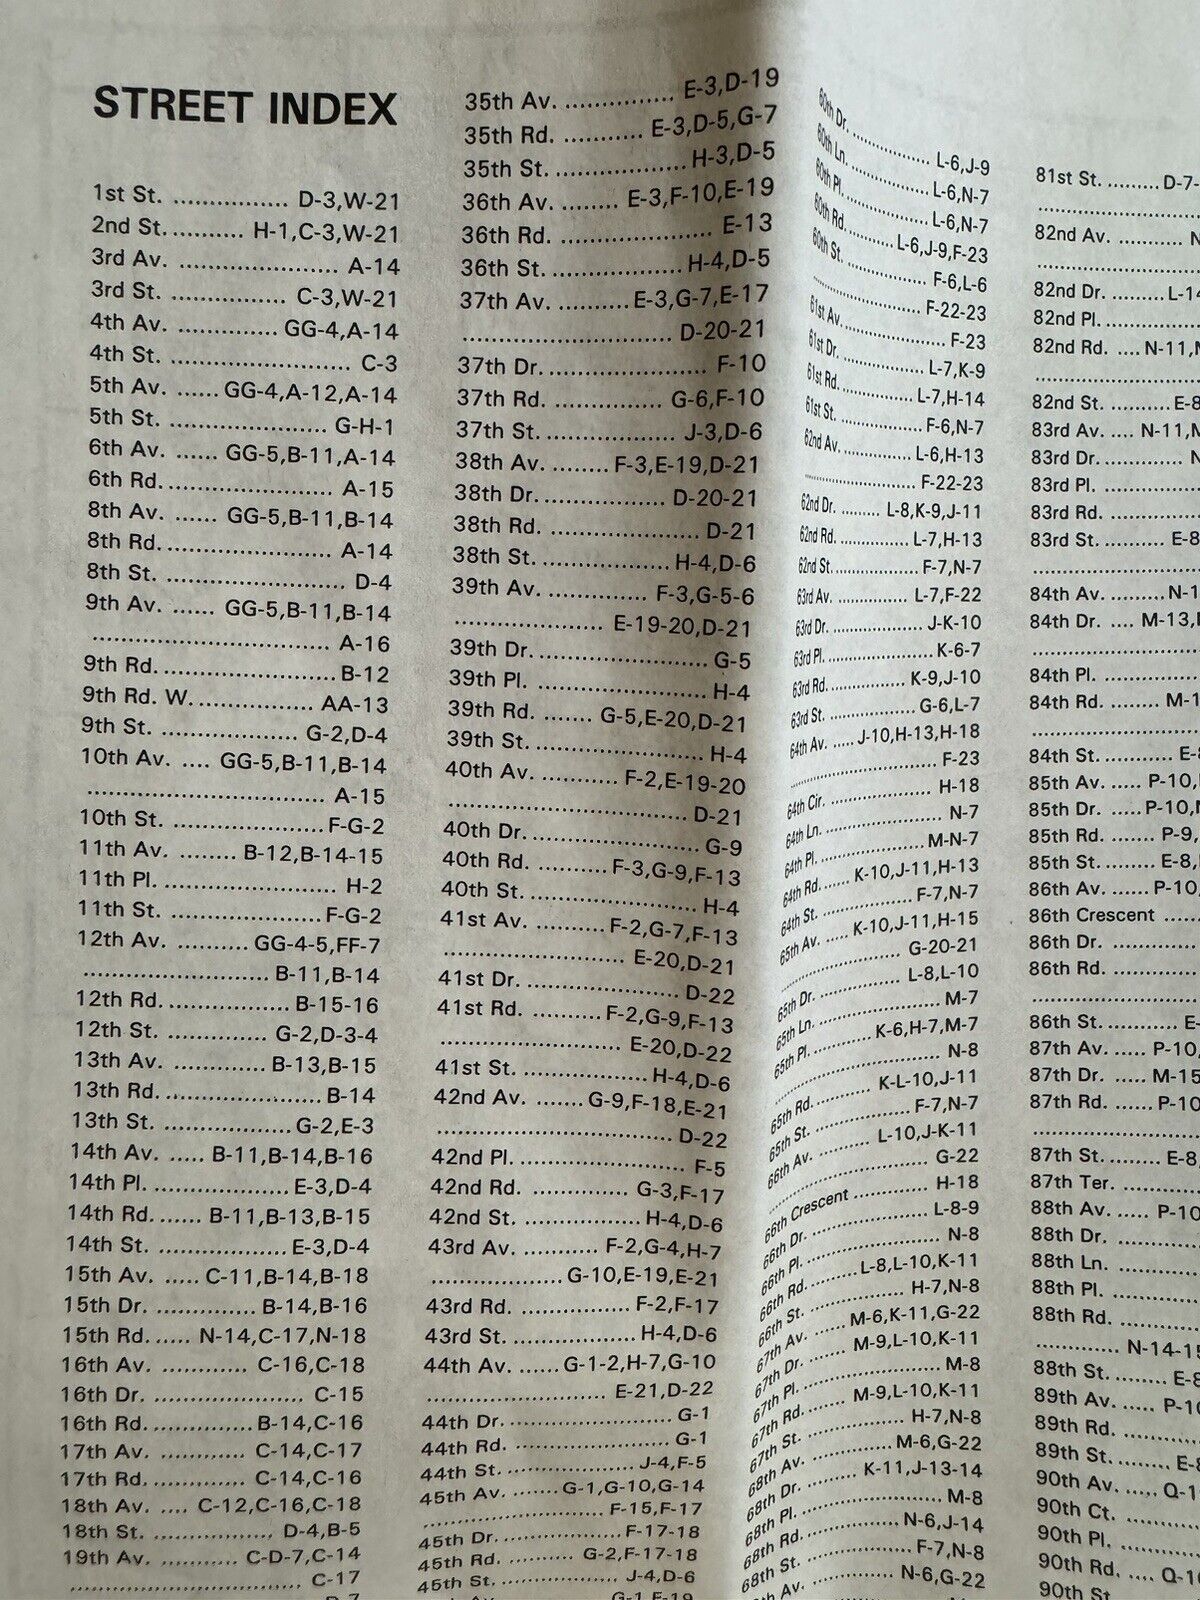 STREET INDEX
1st St. ................ D-3,W-21
2nd St. .......... H-1,C-3,W-21
3rd Av. ...................... A-14
3rd St. ................ C-3,W-21
4th Av. .............. GG-4,A-14
4th St. ............................. C-3
5th Av. ...... GG-4,A-12,A-14
5th St. ...................... G-H-1
6th Av. ...... GG-5,B-11,A-14
6th Rd. ....................... A-15
8th Av. ...... GG-5,B-11,B-14
8th Rd. ....................... A-14
8th St. ......................... D-4
9th Av. ...... GG-5,B-11,B-14
................................. A-16
9th Rd. ........................ B-12
9th Rd. W. ................ AA-13
9th St. ................... G-2,D-4
10th Av. .... GG-5,B-11,B-14
................................. A-15
10th St. ..................... F-G-2
11th Av. ......... B-12,B-14-15
11th Pl. ........................ H-2
11th St. ..................... F-G-2
12th Av. .......... GG-4-5,FF-7
......................... B-11,B-14
12th Rd. ................. B-15-16
12th St. ............ G-2,D-3-4
13th Av. ............. B-13,B-15
13th Rd. ...................... B-14
13th St. ................. G-2,E-3
14th Av. ..... B-11,B-14,B-16
14th Pl. .................. E-3,D-4
14th Rd. ...... B-11,B-13,B-15
14th St. .................. E-3,D-4
15th Av. ..... C-11,B-14,B-18
15th Dr. .............. B-14,B-16
15th Rd. ..... N-14,C-17,N-18
16th Av. ............ C-16,C-18
16th Dr. ..................... C-15
16th Rd. ............. B-14,C-16
17th Av. ............ C-14,C-17
17th Rd. ............. C-14,C-16
18th Av. .... C-12,C-16,C-18
18th St. ................ D-4,B-5
19th Av. .......... C-D-7,C-14
................................ C-17
D-7
35th Av. ............... E-3,D-19
35th Rd. ........... E-3,D-5,G-7
35th St. .................. H-3,D-5
36th Av. ........ E-3,F-10,E-19
36th Rd. ...................... E-13
36th St. .................. H-4,D-5
37th Av. .......... E-3,G-7,E-17
............................. D-20-21
37th Dr. ....................... F-10
37th Rd. .............. G-6,F-10
37th St. .................. J-3,D-6
38th Av. ....... F-3,E-19,D-21
38th Dr. ................. D-20-21
38th Rd. ...................... D-21
38th St. .................. H-4,D-6
39th Av. ............... F-3,G-5-6
..................... E-19-20,D-21
39th Dr. ........................ G-5
39th Pl. ........................ H-4
39th Rd. ....... G-5,E-20,D-21
39th St. ....................... H-4
40th Av. ............ F-2,E-19-20
................................. D-21
40th Dr. ........................ G-9
40th Rd. .......... F-3,G-9,F-13
40th St. ........................ H-4
41st Av. ........... F-2,G-7,F-13
......................... E-20,D-21
41st Dr. ...................... D-22
41st Rd. ........... F-2,G-9,F-13
......................... E-20,D-22
41st St. .................. H-4,D-6
42nd Av. ....... G-9,F-18,E-21
................................. D-22
42nd Pl. ....................... F-5
42nd Rd. .............. G-3,F-17
42nd St. ................. H-4,D-6
43rd Av. .......... F-2,G-4,H-7
.................. G-10,E-19,E-21
43rd Rd. ................ F-2,F-17
43rd St. .................. H-4,D-6
44th Av. ....... G-1-2,H-7,G-10
......................... E-21,D-22
44th Dr. ....................... G-1
44th Rd. ....................... G-1
44th St. .................. J-4,F-5
45th Av. ........ G-1,G-10,G-14
......................... F-15,F-17
45th Dr. ................. F-17-18
45th Rd. .......... G-2,F-17-18
45th St. ................. J-4,D-6
G-1,F-19
60th Dr. ................ L-6,J-9
60th Ln. ................ L-6,N-7
60th Pl. ................ L-6,N-7
60th Rd. ......... L-6,J-9,F-23
60th St. ................ F-6,L-6
............................ F-22-23
61st Av. ...................... F-23
61st Dr. ................ L-7,K-9
61st Rd. ............... L-7,H-14
61st St. ................ F-6,N-7
62nd Av. .............. L-6,H-13
........................... F-22-23
62nd Dr. ......... L-8,K-9,J-11
62nd Rd. ................ L-7,H-13
62nd St. .................. F-7,N-7
63rd Av. ................ L-7,F-22
63rd Dr. .................... J-K-10
63rd Pl. ....................... K-6-7
63rd Rd. ................. K-9,J-10
63rd St. .................. G-6,L-7
64th Av. ..... J-10,H-13,H-18
................................ F-23
64th Cir. ..................... H-18
64th Ln. ....................... N-7
64th Pl. ..................... M-N-7
64th Rd. ..... K-10,J-11,H-13
64th St. .................. F-7,N-7
65th Av. ..... K-10,J-11,H-15
............................. G-20-21
65th Dr. ................. L-8,L-10
65th Ln. ....................... M-7
65th Pl. .......... K-6,H-7,M-7
................................ N-8
65th Rd. ............ K-L-10,J-11
65th St. .................. F-7,N-7
66th Av. ............ L-10,J-K-11
................................ G-22
66th Crescent ............. H-18
66th Dr. ..................... L-8-9
66th Pl. ........................ N-8
66th Rd. ........ L-8,L-10,K-11
66th St. .................. H-7,N-8
67th Av. ...... M-6,K-11,G-22
67th Dr. ........ M-9,L-10,K-11
67th Pl. ....................... M-8
67th Rd. ....... M-9,L-10,K-11
67th St. .................. H-7,N-8
68th Av. ............... M-6,G-22
68th Dr. ........... K-11,J-13-14
68th Pl. ....................... M-8
68th Rd. ................ N-6,J-14
68th St. .................. F-7,N-8
Av. ............... N-6,G-22
81st St. ......... D-7-
82nd Av. ........... N
82nd Dr. ......... L-14
82nd Pl. ..............
82nd Rd. .... N-11,N
82nd St. ........... E-8
83rd Av. .... N-11,M
83rd Dr. ............. N
83rd Pl. ..............
83rd Rd. .............
83rd St. ........... E-8
84th Av. .......... N-1
84th Dr. .... M-13,
84th Pl. ..............
84th Rd. ......... M-1
84th St. ............ E-8
85th Av. ..... P-10,
85th Dr. ..... P-10,N
85th Rd. ....... P-9,
85th St. ......... E-8,
86th Av. ...... P-10,
86th Crescent ......
86th Dr. ..............
86th Rd. .............
86th St. ............ E-
87th Av. ..... P-10,
87th Dr. ..... M-15
87th Rd. ...... P-10
87th St. ......... E-8,
87th Ter. .............
88th Av. ...... P-10
88th Dr. ..............
88th Ln. ..............
88th Pl. ..............
88th Rd. .............
............. N-14-15
88th St. ........... E-8
89th Av. ...... P-10
89th Rd. .............
89th St. ........... E-8
90th Av. ..... Q-1
90th Ct. ..............
90th Pl. ..............
90th Rd. .... Q-10
90th St.